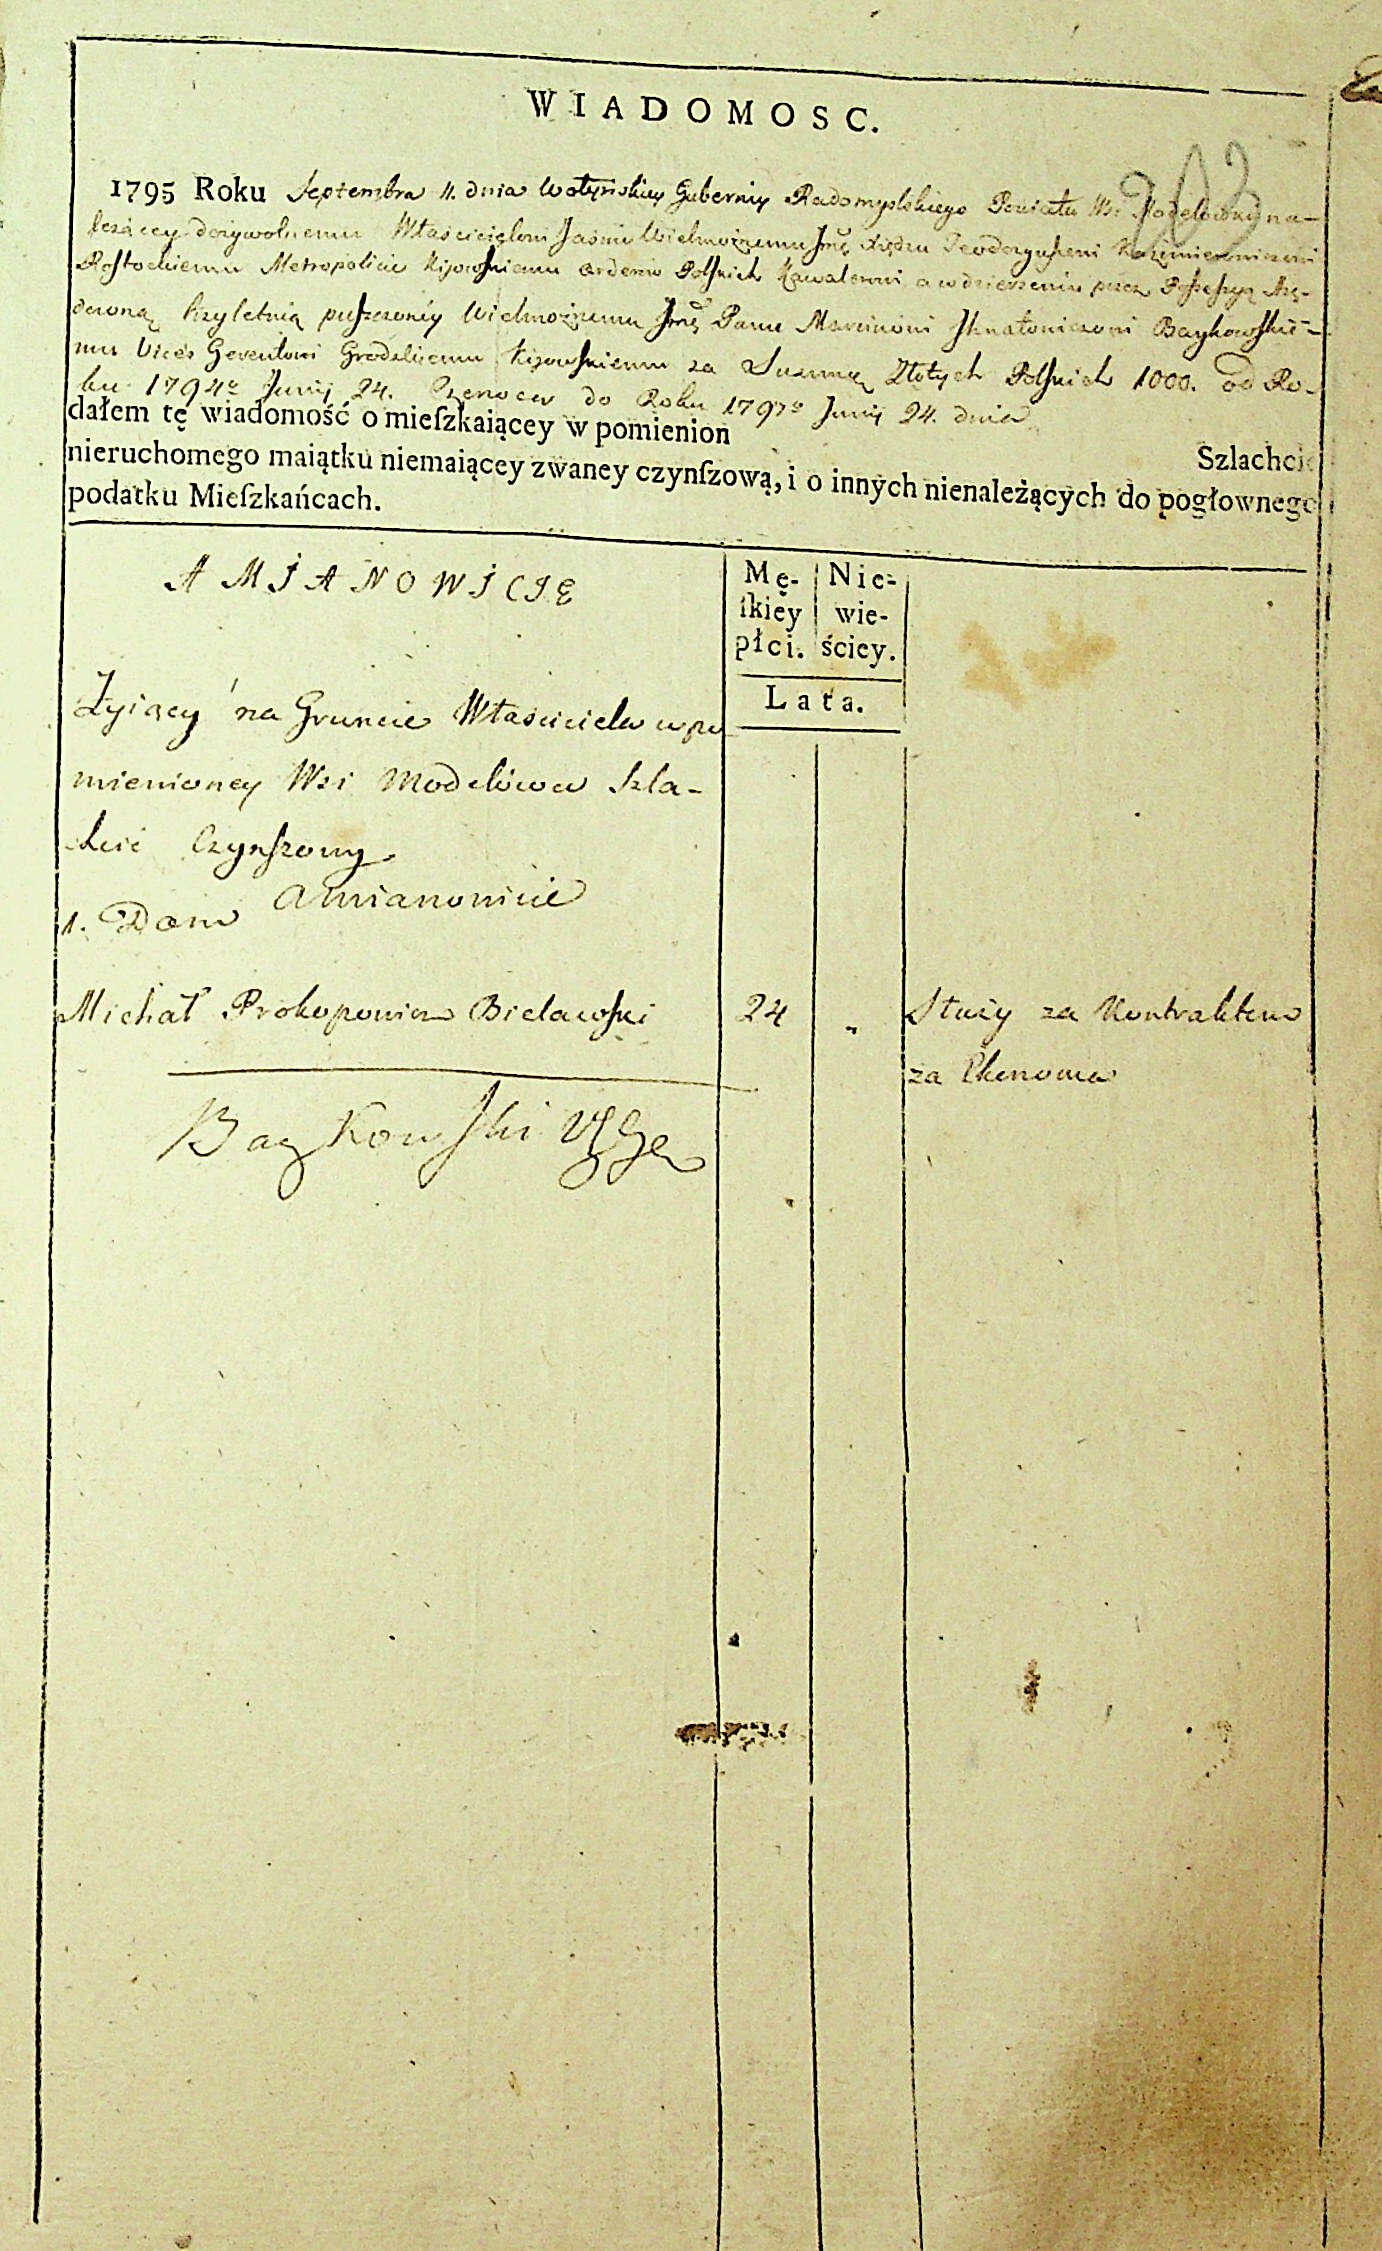 WIADOMOSC.
203
1795 Roku Septembra 11. dnia Wołyńskiey Gubernij Radomyslskiego Powiatu Wsi Modelowki na-
leżącey dożywolnemu Właścicielowi Jaśnie Wielmożnemu Jmę Xiędzu Teodozyuszeni Kazimierowiczowi
Rostockiemu Metropolicie Kijowskiemu Orderow Polskich Kawalerowi a w dzierżeniu przez Possessyą Arę-
downą trzyletnią puszczoney Wielmożnemu Jmę Panu Marcinowi Jknatowiczowi Baykowskie-
mu Vices Gerentowi Grodzkiemu Kijowskiemu za Summę Złotych Polskich 1000. od Ro-
ku 1794º Junij 24. Czerwca do Roku 1797º Junij 24. dnia
dałem tę wiadomość o mieſzkaiącey w pomienion Szlachcie
nieruchomego maiątku niemaiącey zwaney czynſzową, i o innych nienależących do pogłownego
podatku Mieſzkańcach.
AMIANOWICIE
Mę- Nie-
ſkiey wie-
płci. ściey.
Lata.
Żyiący na Gruncie Właściciela w po
mienioney Wsi Modelowce Szla-
chcic Czynszowy
Amianowicie
1. Dom
Michał Prokopowicz Bielawski 24 „ Służy za Kontraktem
za Ekonoma
Baykowski VSGr